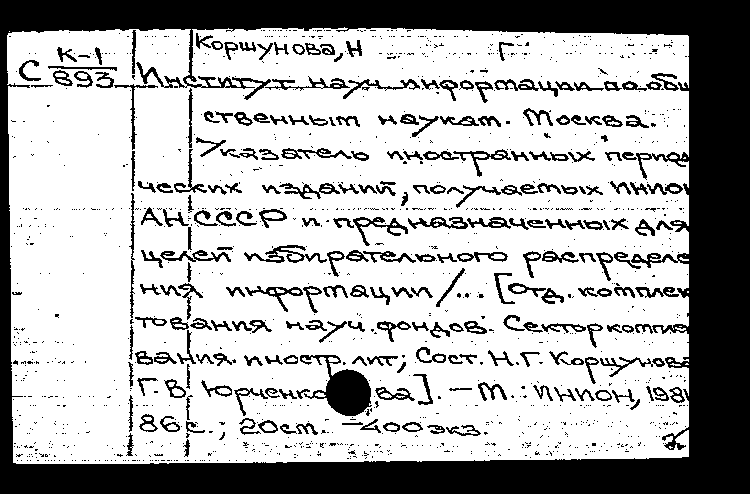 Коршунова, Н Г
С К-1/893 Институт науч информации по общ
ственным наукам. Москва.
Указатель иностранных период
ческих изданий, получаемых ИНИОН
АН СССР и предназначенных для
целей избирательного распределе
ния информации /... [Отд. комплек
тования науч. фондов. Сектор комплек
вания иностр. лит; Сост. Н.Г. Коршунова
Г.В. Юрченко ва]. — М.: ИНИОН, 198
86 с.; 20 см. — 400 экз.